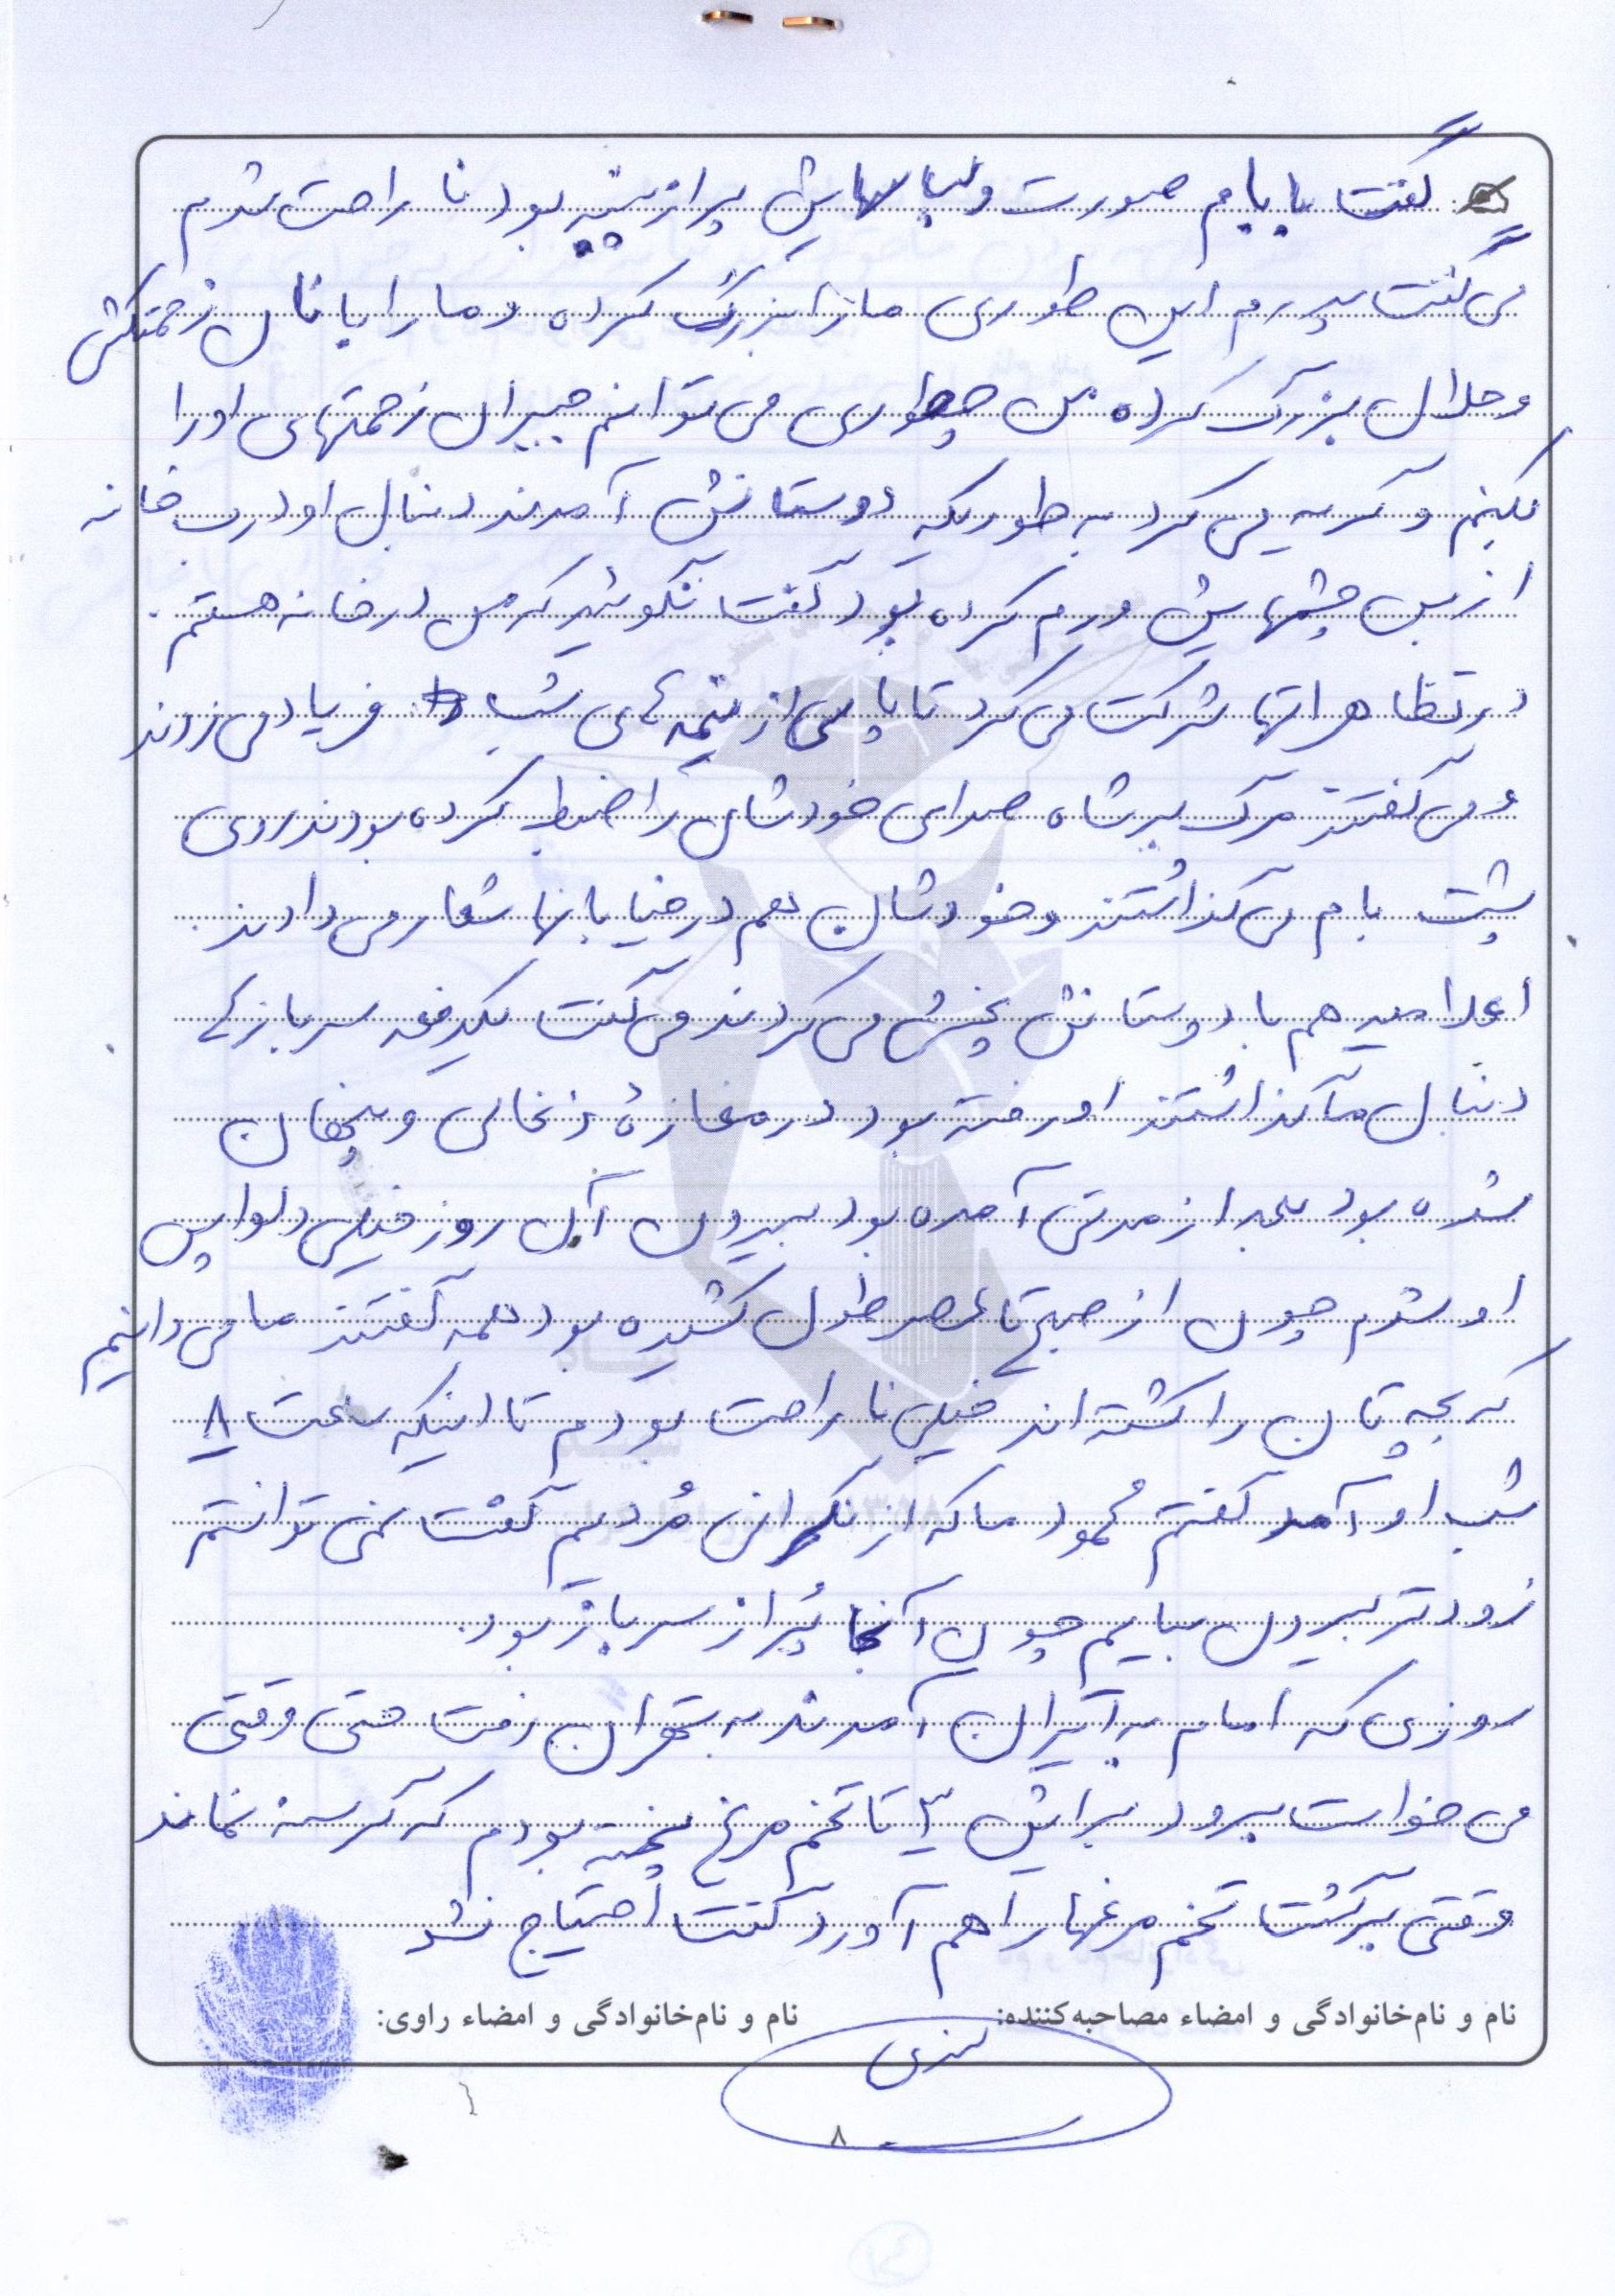 گفت بابام صورت و لباسهایش پر از پنبه بود ناراحت شدم
می گفت پدرم این طوری ما را بزرگ کرده و ما را با نان زحمتکشی
و حلال بزرگ کرده من چطوری می توانم جبران زحمتهای او را
بکنم و گریه می کرد به طوریکه دوستانش آمدند دنبال او درب خانه
از بس چشمهایش ورم کرده بود گفت نگوئید که من در خانه هستم.
در تظاهراتها شرکت می کرد تا پاسی از نیمه های شب فریاد می زدند
و می گفتند مرگ بر شاه صدای خودشان را ضبط کرده بودند روی
پشت بام می گذاشتند و خودشان هم در خیابانها شعار می دادند.
اعلامیه هم با دوستانش پخش می کردند می گفت یکدفعه سربازها
دنبال ما گذاشتند او رفته بود در مغازهٔ ذغالی و پنهان
شده بود بعد از مدتی آمده بود بیرون آن روز خیلی دلواپس
او شدم چون از صبح تا عصر طول کشیده بود همه گفتند ما می دانیم
که بچه تان را کشته اند خیلی ناراحت بودم تا اینکه ساعت ۸
شب او آمد گفتم محمود ما که از نگرانی مُردیم گفت نمی توانستم
زودتر بیرون بیایم چون آنجا پُر از سرباز بود.
روزی که امام به ایران آمدند به تهران رفت حتی وقتی
می خواست برود برایش ۳ تا تخم مرغ پخته بودم که گرسنه نماند
وقتی برگشت تخم مرغها را هم آورد گفت احتیاج نشد
نام و نام‌خانوادگی و امضاء مصاحبه‌کننده: نام و نام‌خانوادگی و امضاء راوی:
۸